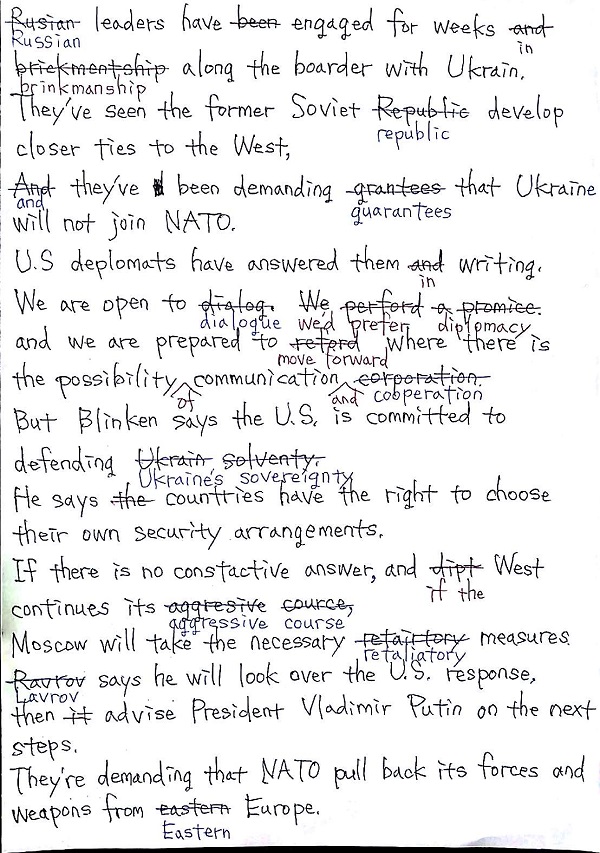 Rusian leaders have been engaged for weeks and
Russian
in
brickmentship along the boarder with Ukrain.
brinkmanship
They've seen the former Soviet Republic develop
republic
closer ties to the West,
And they've been demanding grantees that Ukraine
and
guarantees
will not join NATO.
U.S deplomats have answered them and writing.
in
We are open to dialog. We perford a promice.
dialogue we'd prefer diplomacy
and we are prepared to reterd where there is
move forward
the possibility communication corporation.
of
and cooperation
But Blinken says the U.S. is committed to
defending Ukrain solventy.
Ukraine's sovereignty
He says the countries have the right to choose
their own security arrangements.
If there is no constactive answer, and dipt West
if the
continues its aggresive cource,
aggressive course
Moscow will take the necessary retairtory measures.
retaliatory
Ravrov says he will look over the U.S. response,
Lavrov
then it advise President Vladimir Putin on the next
steps.
They're demanding that NATO pull back its forces and
weapons from eastern Europe.
Eastern